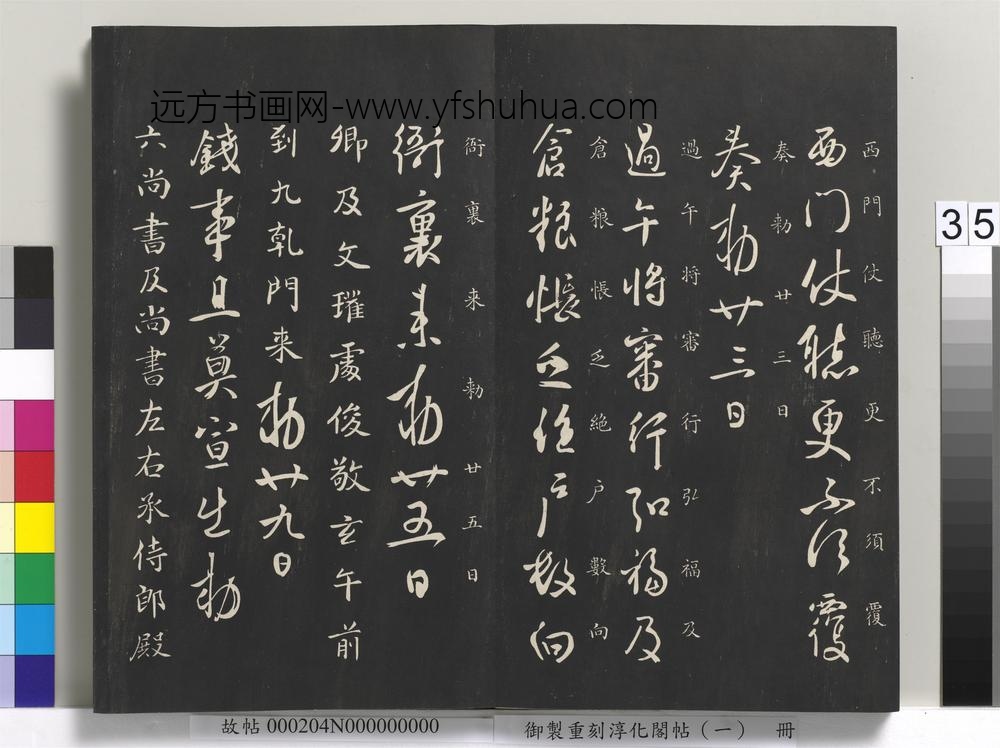 远方书画网-www.yfshuhua.com
西門仗聽更不須覆
西門仗聽更不須覆
奏勅廿三日
奏勅廿三日
過午将審行弘福及
過午将審行弘福及
倉粮悵乏絶户數向
倉粮悵乏絶户數向
衙裏来勅廿五日
衙裏来勅廿五日
卿及文瓘處俊敬玄午前
到九乹門来勅廿九日
錢事且莫宣生勅
六尚書及尚書左右丞侍郎殿
35
故帖 000204N000000000
御製重刻淳化閣帖（一） 冊